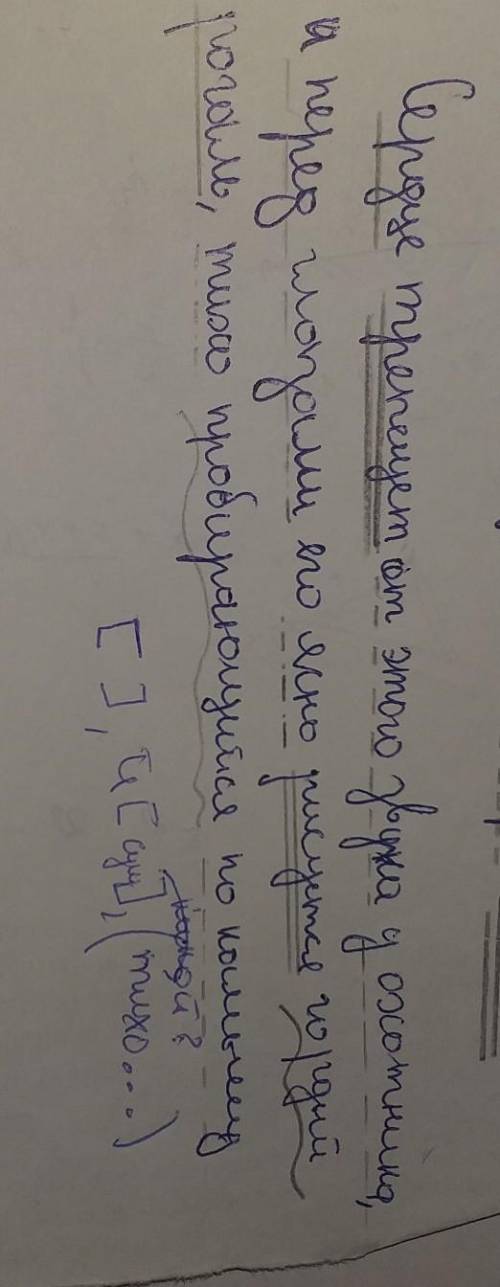 Сердце трепещет от этого звука у охотника,
и перед глазами его ясно рисуется гордый
рогаль, тихо пробирающийся по камышу
[ ], и [сущ], (тихо...)
какой?